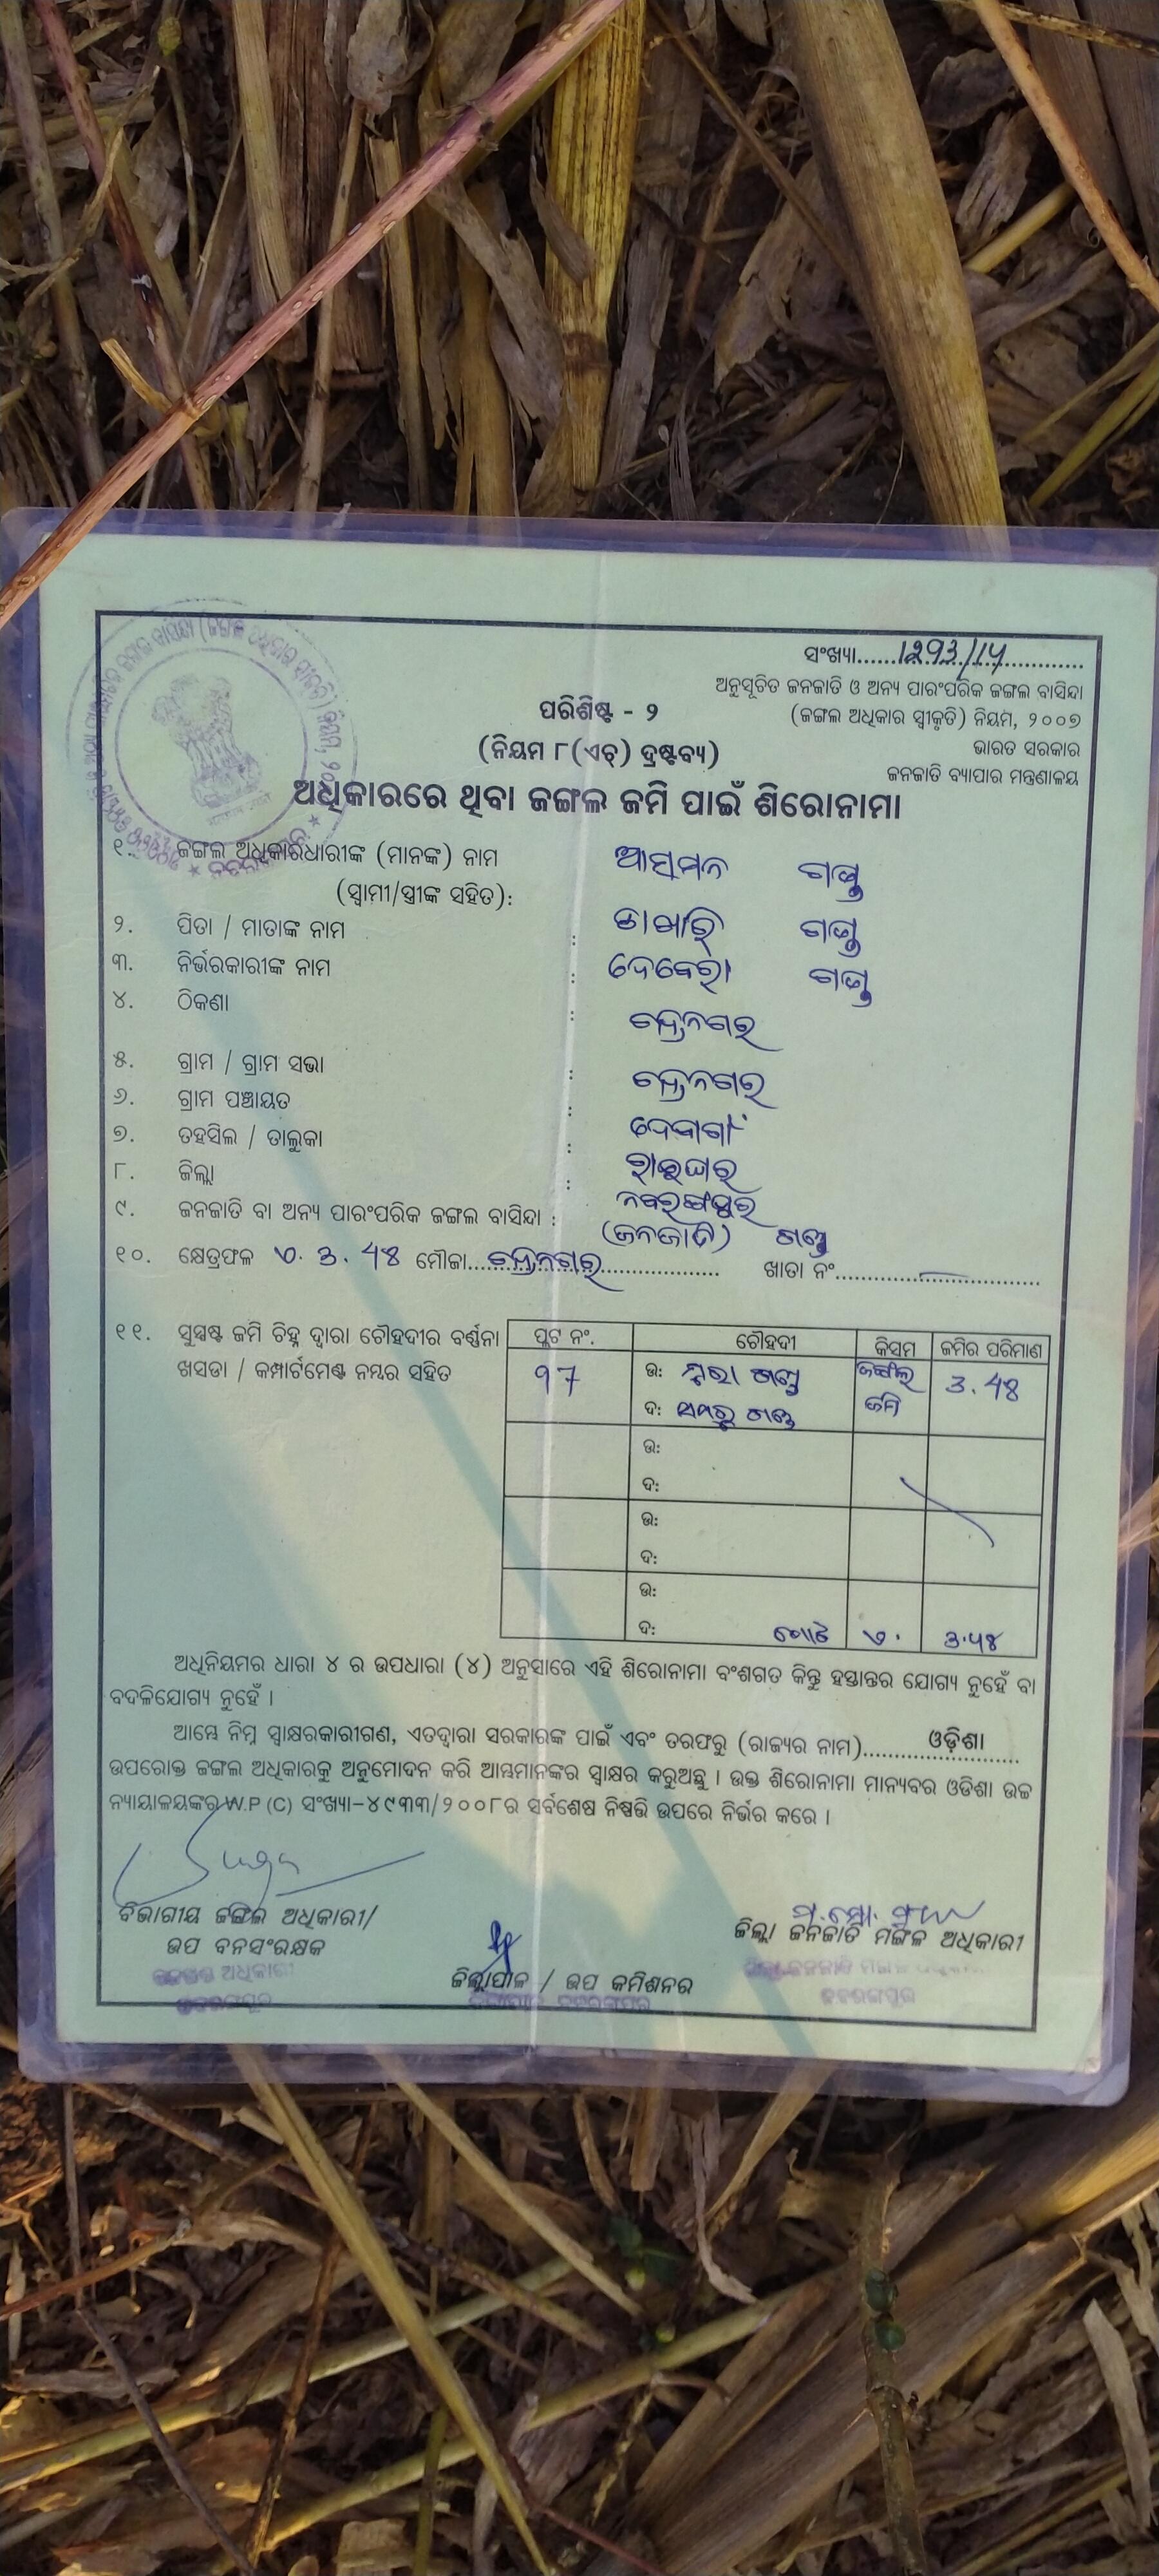 ସଂଖ୍ୟା....1293/14....
ଅନୁସୂଚିତ ଜନଜାତି ଓ ଅନ୍ୟ ପାରଂପରିକ ଜଙ୍ଗଲ ବାସିନ୍ଦା
(ଜଙ୍ଗଲ ଅଧିକାର ସ୍ୱୀକୃତି) ନିୟମ, ୨୦୦୭
ଭାରତ ସରକାର
ଜନଜାତି ବ୍ୟାପାର ମନ୍ତ୍ରଣାଳୟ
ପରିଶିଷ୍ଟ - ୨
(ନିୟମ ୮(ଏଚ୍) ଦ୍ରଷ୍ଟବ୍ୟ)
ଅଧିକାରରେ ଥିବା ଜଙ୍ଗଲ ଜମି ପାଇଁ ଶିରୋନାମା
୧. ଜଙ୍ଗଲ ଅଧିକାରଧାରୀଙ୍କ (ମାନଙ୍କ) ନାମ ଆସମନ ଗଣ୍ଡ
(ସ୍ୱାମୀ/ସ୍ତ୍ରୀଙ୍କ ସହିତ):
୨. ପିତା / ମାତାଙ୍କ ନାମ : ଗଣ୍ଡ
୩. ନିର୍ଭରକାରୀଙ୍କ ନାମ : ଗଣ୍ଡ
୪. ଠିକଣା :
୫. ଗ୍ରାମ / ଗ୍ରାମ ସଭା :
୬. ଗ୍ରାମ ପଞ୍ଚାୟତ :
୭. ତହସିଲ / ତାଲୁକା : ରାଇଘର
୮. ଜିଲ୍ଲା : ନବରଙ୍ଗପୁର
୯. ଜନଜାତି ବା ଅନ୍ୟ ପାରଂପରିକ ଜଙ୍ଗଲ ବାସିନ୍ଦା : (ଜନଜାତି) ଗଣ୍ଡ
୧୦. କ୍ଷେତ୍ରଫଳ ଏ. 3.48 ମୌଜା........ ଖାତା ନଂ........
୧୧. ସୁସ୍ପଷ୍ଟ ଜମି ଚିହ୍ନ ଦ୍ୱାରା ଚୌହଦୀର ବର୍ଣ୍ଣନା
ଖସଡା / କମ୍ପାର୍ଟମେଣ୍ଟ ନମ୍ବର ସହିତ
ପ୍ଲଟ ନଂ. ଚୌହଦୀ କିସମ ଜମିର ପରିମାଣ
97 ଉ: ଗଣ୍ଡ ଜଙ୍ଗଲ 3.48
ଦ: ଗଣ୍ଡ ଜମି
ଉ:
ଦ:
ଉ:
ଦ:
ଉ:
ଦ: ମୋଟ ଏ.
ଅଧିନିୟମର ଧାରା ୪ ର ଉପଧାରା (୪) ଅନୁସାରେ ଏହି ଶିରୋନାମା ବଂଶଗତ କିନ୍ତୁ ହସ୍ତାନ୍ତର ଯୋଗ୍ୟ ନୁହେଁ ବା
ବଦଳିଯୋଗ୍ୟ ନୁହେଁ ।
ଆମ୍ଭେ ନିମ୍ନ ସ୍ୱାକ୍ଷରକାରୀଗଣ, ଏତଦ୍ୱାରା ସରକାରଙ୍କ ପାଇଁ ଏବଂ ତରଫରୁ (ରାଜ୍ୟର ନାମ)........ଓଡ଼ିଶା........
ଉପରୋକ୍ତ ଜଙ୍ଗଲ ଅଧିକାରକୁ ଅନୁମୋଦନ କରି ଆମ୍ଭମାନଙ୍କର ସ୍ୱାକ୍ଷର କରୁଅଛୁ । ଉକ୍ତ ଶିରୋନାମା ମାନ୍ୟବର ଓଡିଶା ଉଚ୍ଚ
ନ୍ୟାୟାଳୟଙ୍କର W.P (C) ସଂଖ୍ୟା-୪୯୩୩/୨୦୦୮ର ସର୍ବଶେଷ ନିଷ୍ପତ୍ତି ଉପରେ ନିର୍ଭର କରେ ।
ବିଭାଗୀୟ ଜଙ୍ଗଲ ଅଧିକାରୀ/
ଉପ ବନସଂରକ୍ଷକ
ଜିଲ୍ଲାପାଳ / ଉପ କମିଶନର
ଜିଲ୍ଲା ଜନଜାତି ମଙ୍ଗଳ ଅଧିକାରୀ